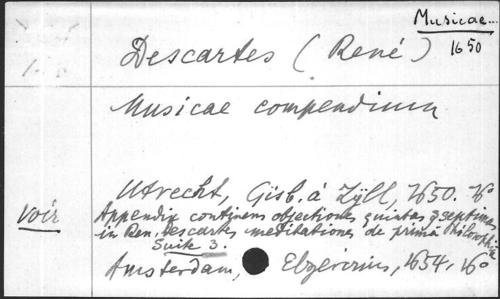 Musicae...
1650
Descartes (René)
Musicae compendium
Utrecht, Gisb. à Zÿll, 1650. 4o
voir
Appendix continens objectiones quintas & septimas
in Ren. Descartes meditationes de prima Philosophia
Suite 3.
Amsterdam, Elzevirius, 1654. 4o